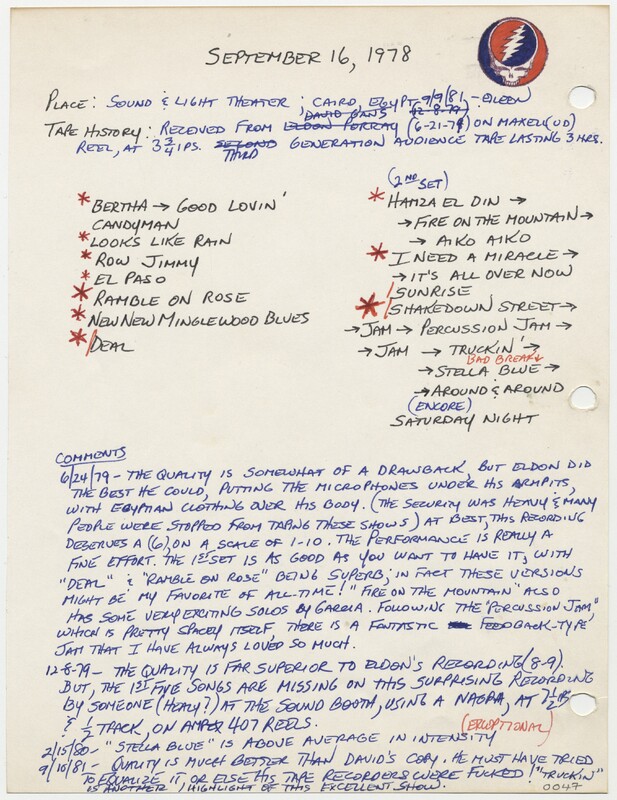 SEPTEMBER 16, 1978
PLACE: SOUND & LIGHT THEATER; CAIRO, EGYPT 9/9/81 - ELDON
DAVID GANS (12-8-79)
TAPE HISTORY: RECEIVED FROM ELDON PORRAY (6-21-79) ON MAXELL (UD)
REEL, AT 3 3/4 IPS. SECOND GENERATION AUDIENCE TAPE LASTING 3 HRS.
THIRD
*BERTHA → GOOD LOVIN'
CANDYMAN
*LOOKS LIKE RAIN
*ROW JIMMY
*EL PASO
*RAMBLE ON ROSE
*NEW NEW MINGLEWOOD BLUES
*/DEAL
(2ND SET)
*HAMZA EL DIN →
→ FIRE ON THE MOUNTAIN →
→ AIKO AIKO
*I NEED A MIRACLE →
→ IT'S ALL OVER NOW
/SUNRISE
*/SHAKEDOWN STREET →
→ JAM → PERCUSSION JAM →
→ JAM → TRUCKIN' →
BAD BREAK
→ STELLA BLUE →
→ AROUND & AROUND
(ENCORE)
SATURDAY NIGHT
COMMENTS
6/24/79 - THE QUALITY IS SOMEWHAT OF A DRAWBACK, BUT ELDON DID
THE BEST HE COULD, PUTTING THE MICROPHONES UNDER HIS ARMPITS,
WITH EGYPTIAN CLOTHING OVER HIS BODY. (THE SECURITY WAS HEAVY & MANY
PEOPLE WERE STOPPED FROM TAPING THESE SHOWS) AT BEST, THIS RECORDING
DESERVES A (6), ON A SCALE OF 1-10. THE PERFORMANCE IS REALLY A
FINE EFFORT. THE 1ST SET IS AS GOOD AS YOU WANT TO HAVE IT, WITH
"DEAL" & "RAMBLE ON ROSE" BEING SUPERB; IN FACT THESE VERSIONS
MIGHT BE MY FAVORITE OF ALL-TIME! "FIRE ON THE MOUNTAIN" ALSO
HAS SOME VERY EXCITING SOLOS BY GARCIA. FOLLOWING THE "PERCUSSION JAM",
WHICH IS PRETTY SPACEY ITSELF, THERE IS A FANTASTIC FEEDBACK-TYPE
JAM THAT I HAVE ALWAYS LOVED SO MUCH.
12-8-79 - THE QUALITY IS FAR SUPERIOR TO ELDON'S RECORDING (8-9).
BUT, THE 1ST FIVE SONGS ARE MISSING ON THIS SURPRISING RECORDING
BY SOMEONE (HEALY?) AT THE SOUND BOOTH, USING A NAGRA, AT 7 1/2 IPS
& 1/2 TRACK, ON AMPEX 407 REELS.
(EXCEPTIONAL)
2/15/80 - "STELLA BLUE" IS ABOVE AVERAGE IN INTENSITY
9/10/81 - QUALITY IS MUCH BETTER THAN DAVID'S COPY. HE MUST HAVE TRIED
TO EQUALIZE IT OR ELSE HIS TAPE RECORDERS WERE FUCKED! "TRUCKIN"
IS ANOTHER HIGHLIGHT OF THIS EXCELLENT SHOW.
0047